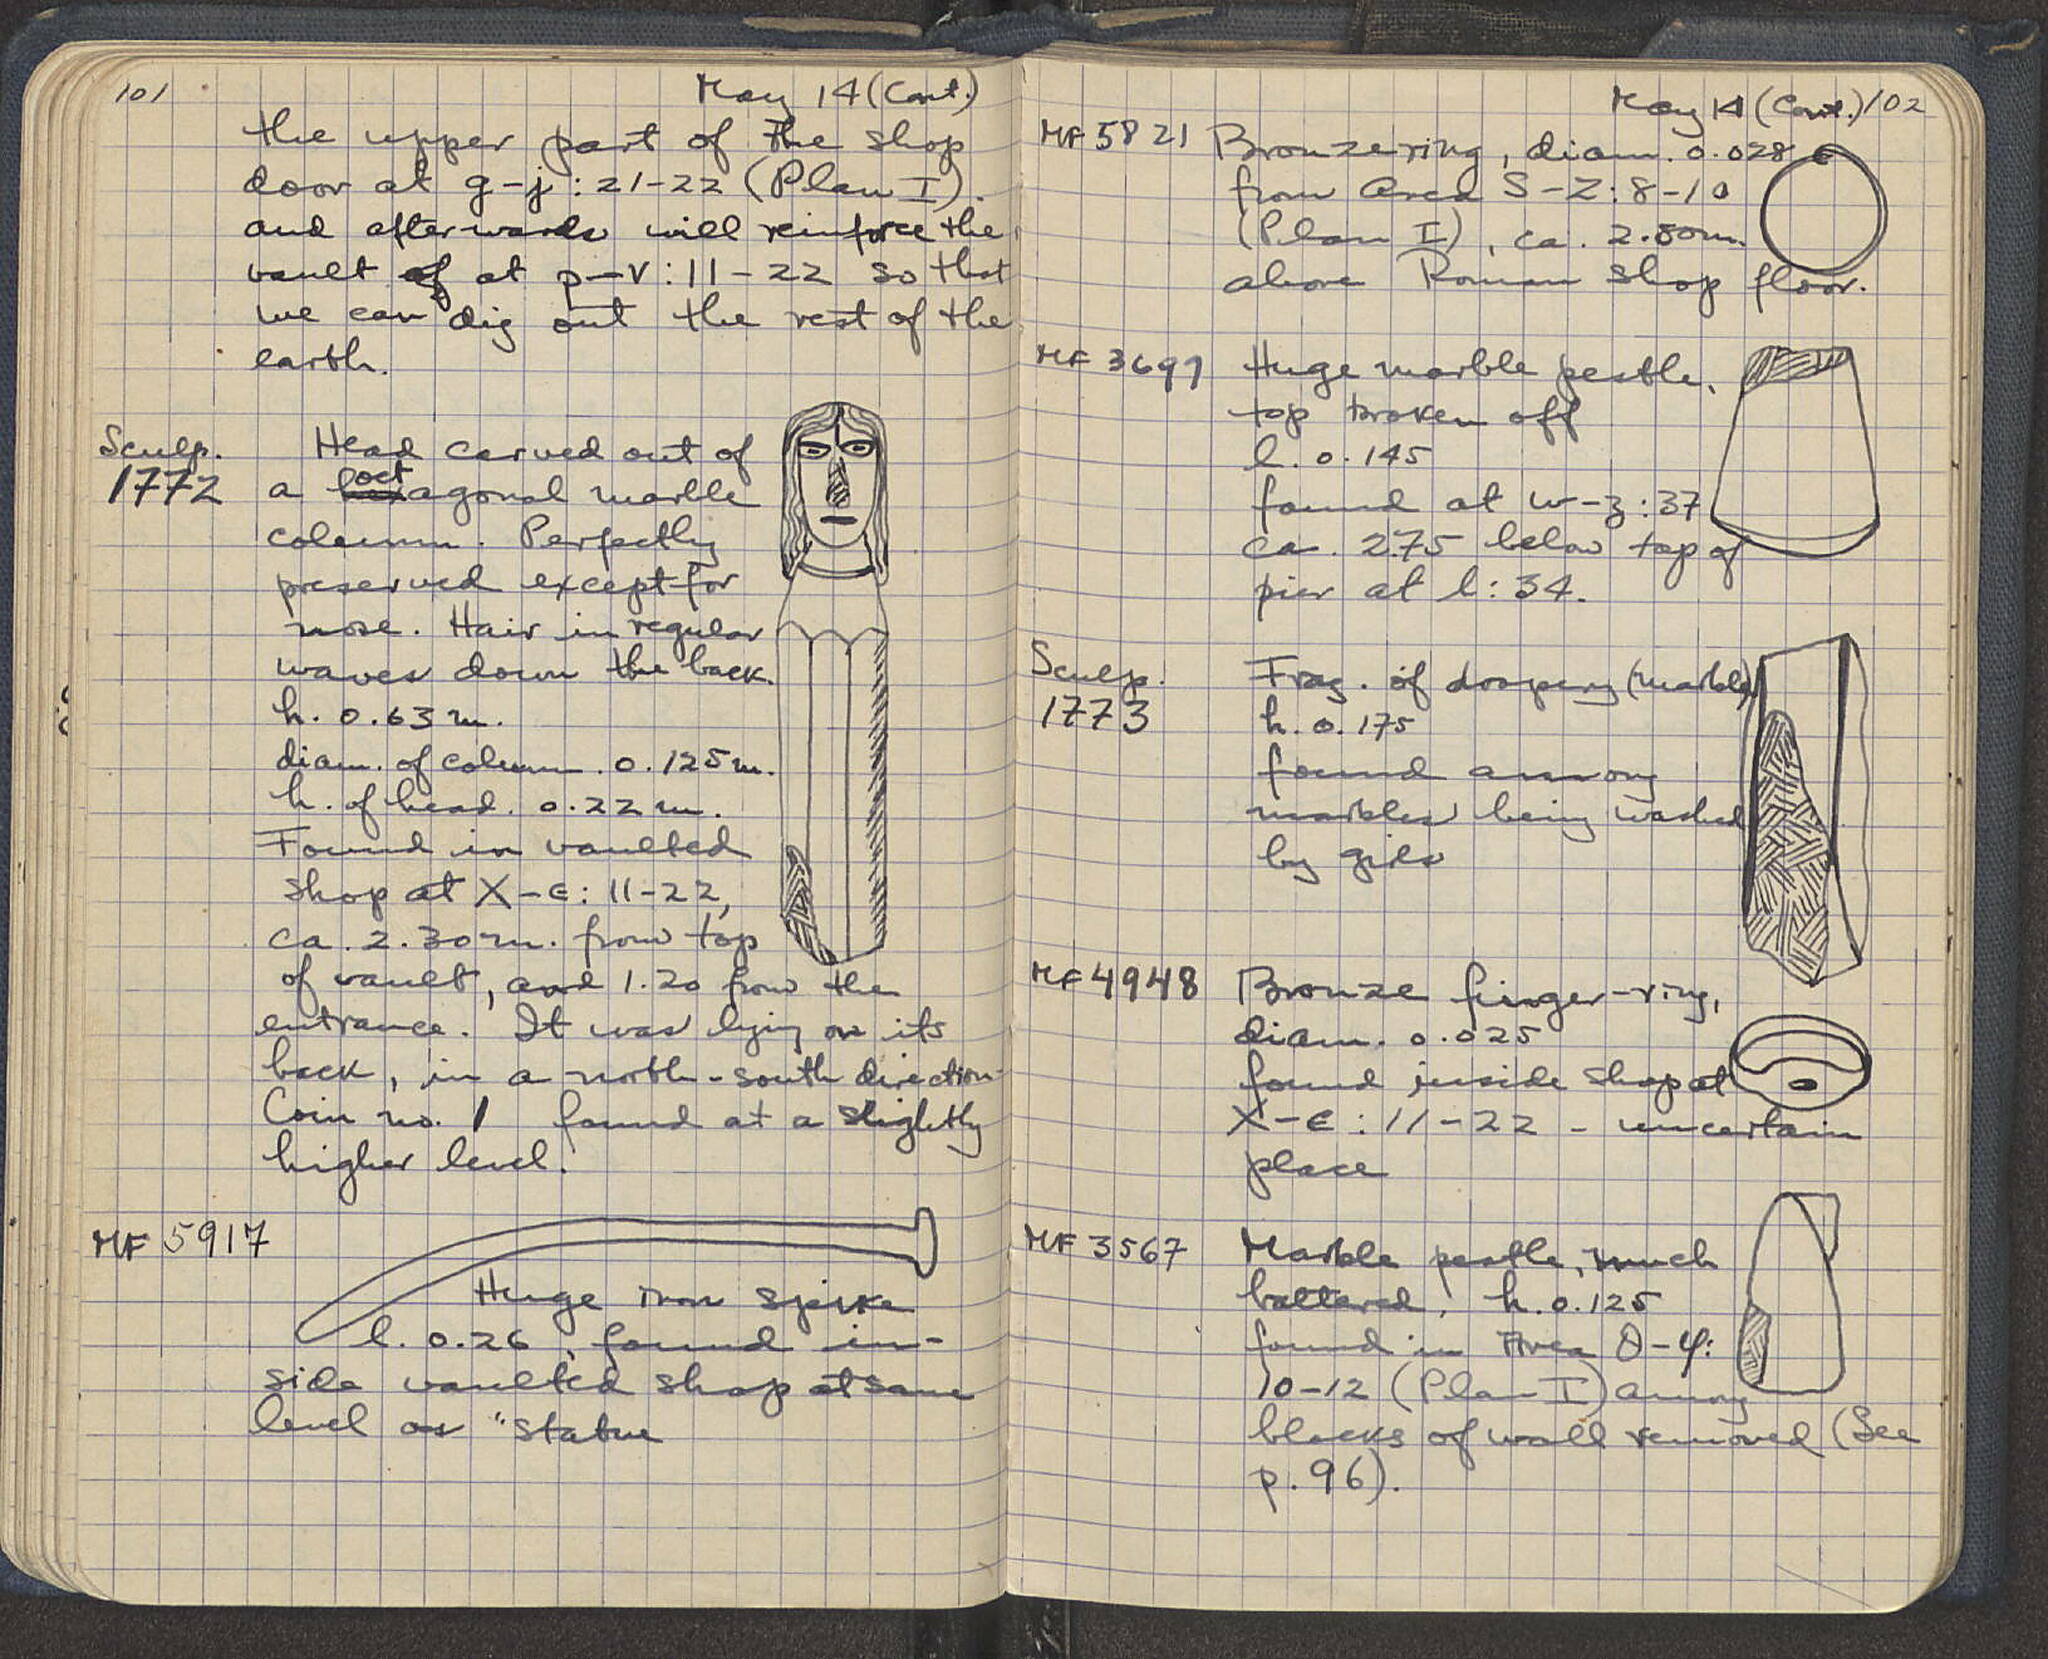 101
May 14 (Cont.)
the upper part of the shop
door at g-j:21-22 (Plan I).
and afterwards will reinforce the
vault of at p-v:11-22 so that
we can dig out the rest of the
earth.
Sculp.
1772
Head carved out of
a hexoctagonal marble
column. Perfectly
preserved except for
nose. Hair in regular
waves down the back.
h. 0.63 m.
diam. of column. 0.125 m.
h. of head. 0.22 m.
Found in vaulted
shop at X-E: 11-22,
ca. 2.30 m. from top
of vault, and 1.20 from the
entrance. It was lying on its
back, in a north-south direction.
Coin no. 1 found at a slightly
higher level.
MF 5917
Huge iron spike
l. 0.26, found in-
side vaulted shop at same
level as "statue
May 14 (Cont.) 102
MF 5821 Bronze ring, diam. 0.028
from Area S-Z:8-10
(Plan I), ca. 2.80m.
above Roman shop floor.
MF 3697 Huge marble pestle,
top broken off
l. 0.145
found at w-z:37
ca. 2.75 below top of
pier at l:34.
Sculp.
1773
Frag. of drapery (marble)
h. 0.175
found among
marbles being washed
by girls
MF 4948 Bronze finger-ring,
diam. 0.025
found inside shop at
X-E:11-22 - uncertain
place
MF 3567 Marble pestle, much
battered, h. 0.125
found in Area θ-φ:
10-12 (Plan I) among
blocks of wall removed (See
p. 96).